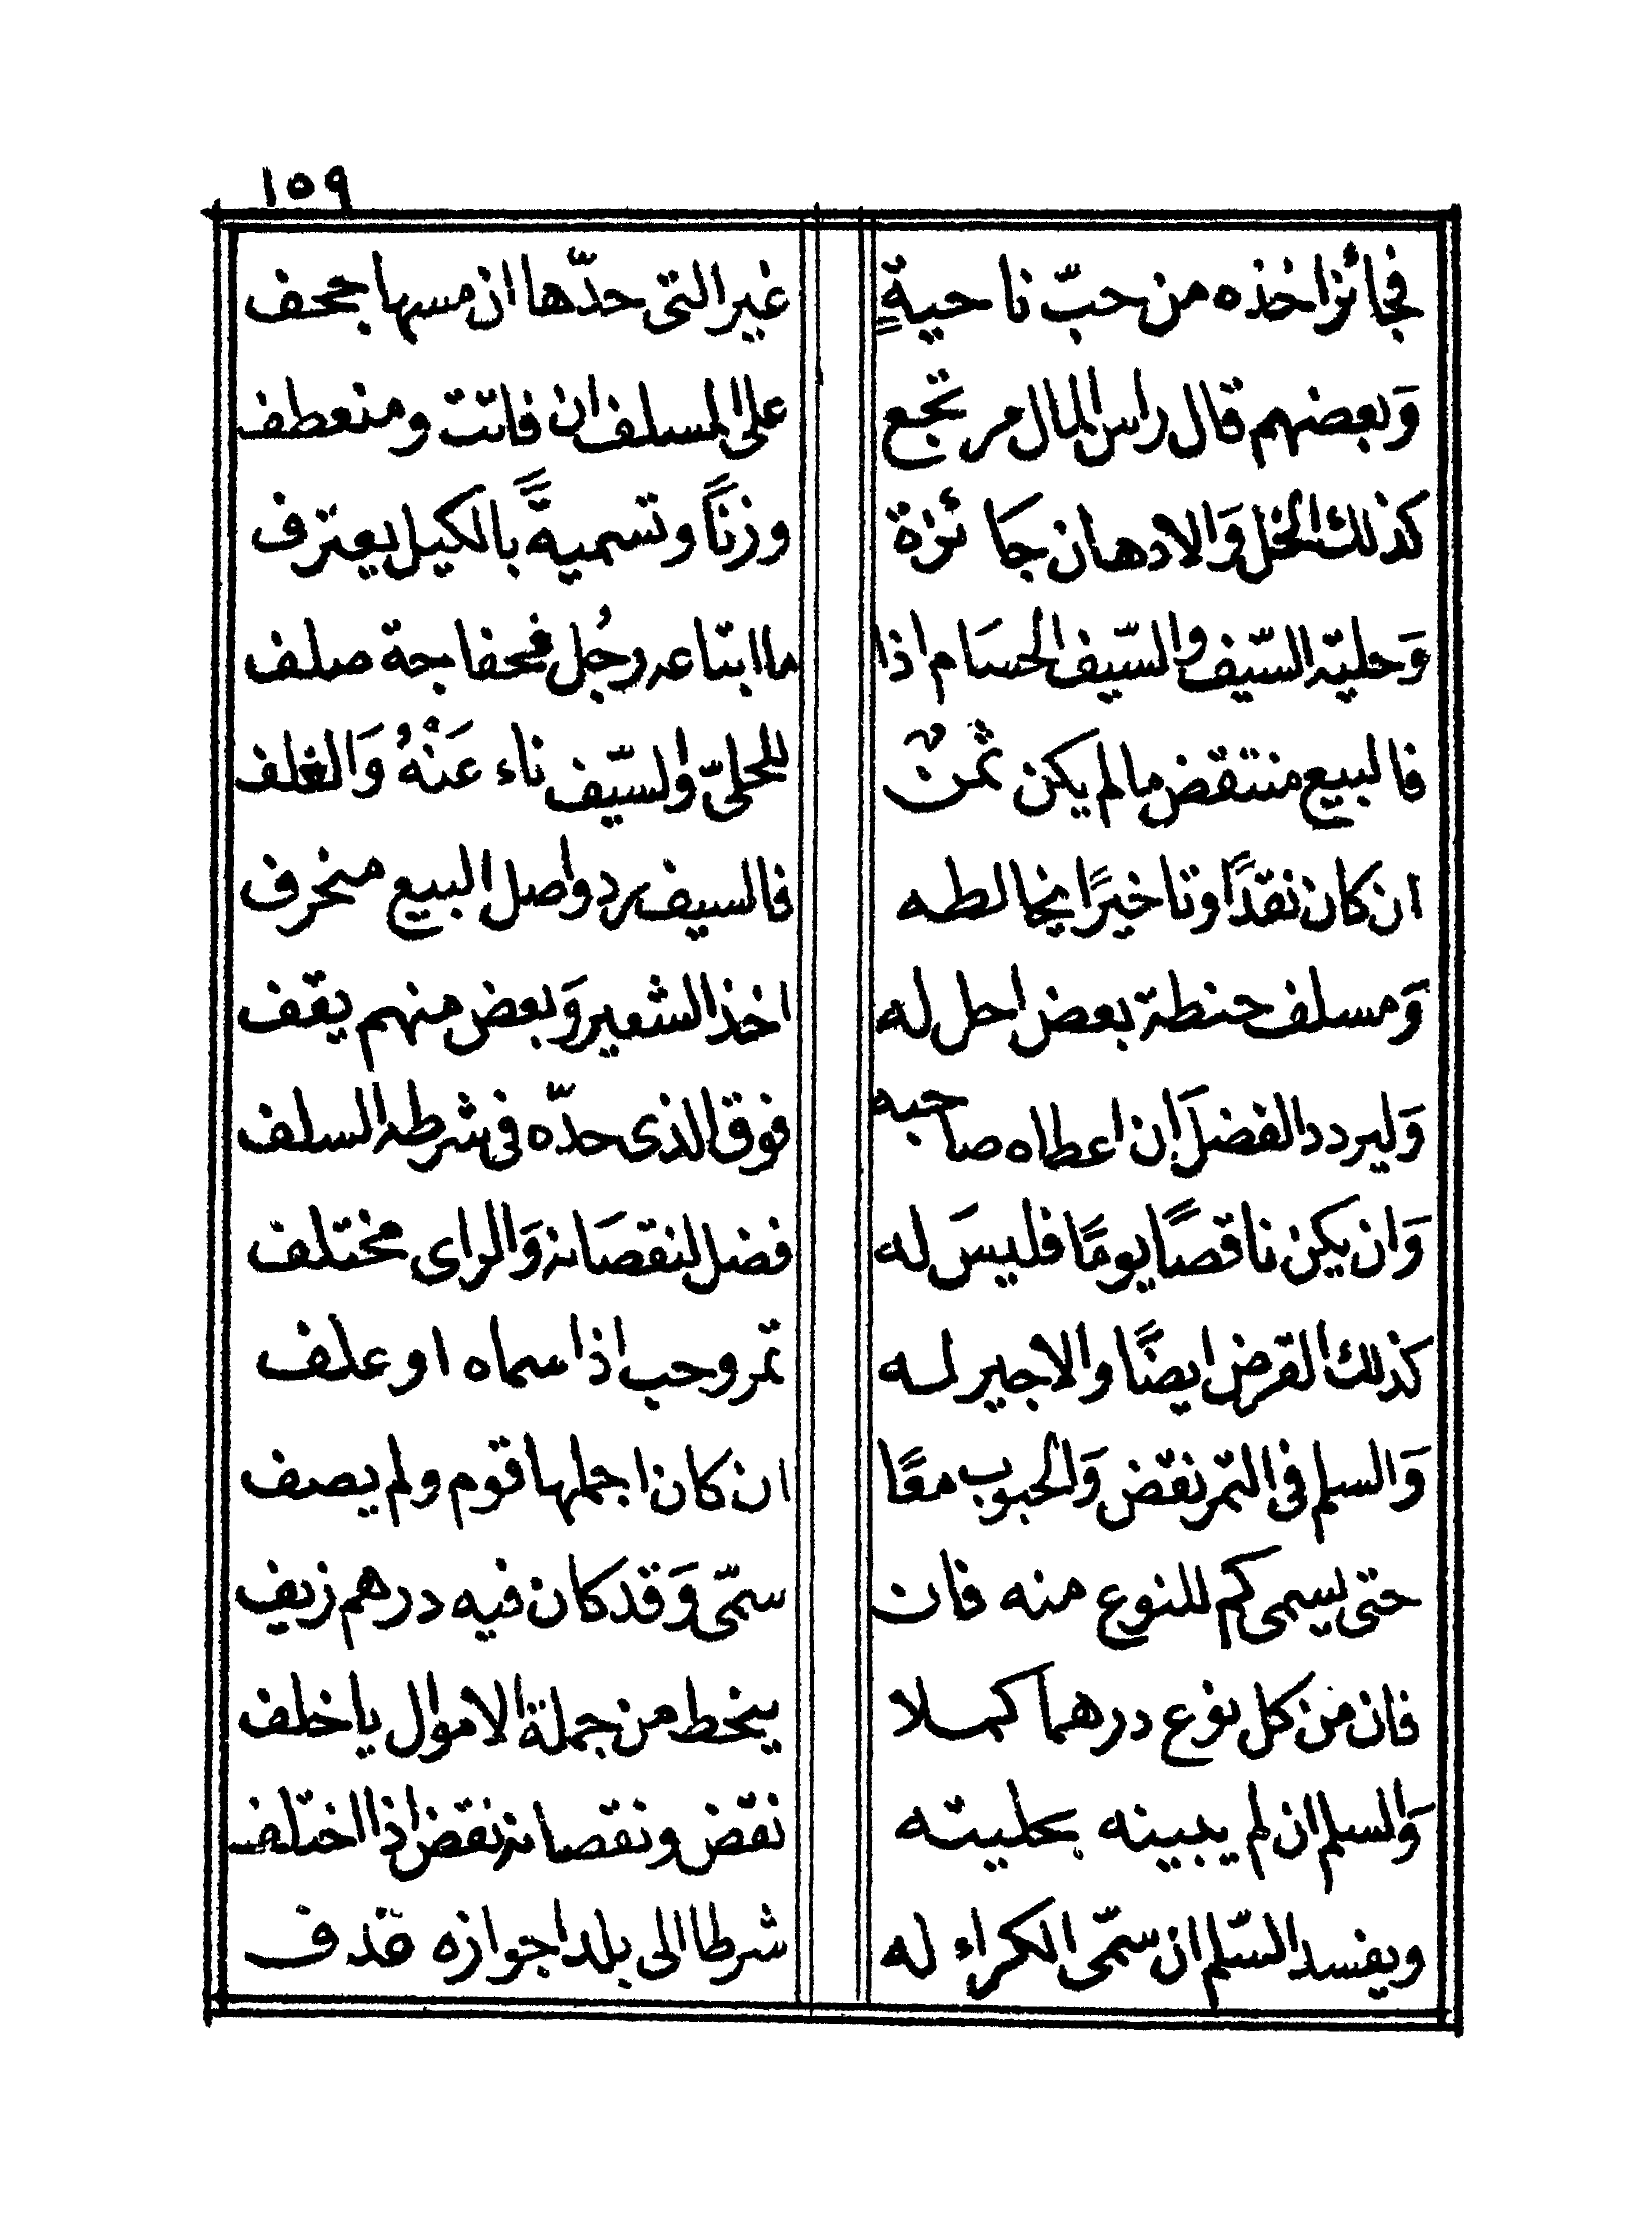 ١٥٩
فجائز اخذه من حبّ ناحيةٍ غير التى حدّها ان مسها جحف
وَبعضهم قال راس المال مرتجع على المسلف ان فاتت ومنعطف
كذلك الخل وَالادهان جَائزة وزنًا وتسميةً بالكيل يعترف
وَحليته السّيف والسّيف الحسَام اذا ما ابتاعه رجُل فخفاجة صلف
فالبيع منتقض مالم يكن ثمنٌ للحلىّ والسّيف ناء عَنْهُ وَالغلف
ان كان نقدًا وتاخيرًا يخالطه فالسيف رد واصل البيع منخرف
وَمسلف حنطة بعض احل له اخذ الشعير وَبعض منهم يقف
وَليردد الفضلَ ان اعطاه صاحبه فوق الذى حدّه فى شرطه السلف
وَان يكن ناقصًا يومًا فليسَ له فضل لنقصَانه وَالراى مختلف
كذلك القرض ايضًا والاجير له تمر وحب اذا سماه او علف
وَالسلم فى التمر نقض وَالحبوب معًا ان كان اجملها قوم ولم يصف
حتى يسمى كم للنوع منه فان سمّى وَقد كان فيه درهم زيف
فان من كل نوع درهما كملا ينحط من جملة الاموال يا خلف
وَالسلم ان لم يبينه بحليته نقض ونقصانه نقض اذا اختلف
ويفسد السّلم ان سمّى الكراء له شرطا الى بلد اجوازه قذف